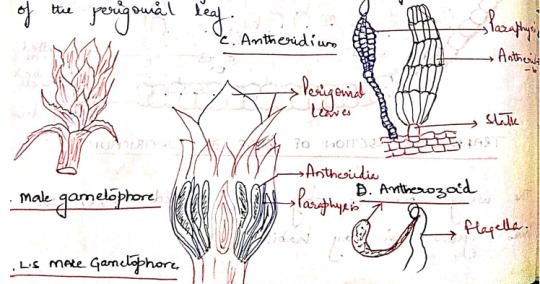 of the perigonial leaf.
C. Antheridium
Paraphysis
Antherid
Stalk
Perigonial
leaves
Antheridia
Paraphysis
Male gametophore
D. Antherozoid
Flagella.
L.S Male Gametophore